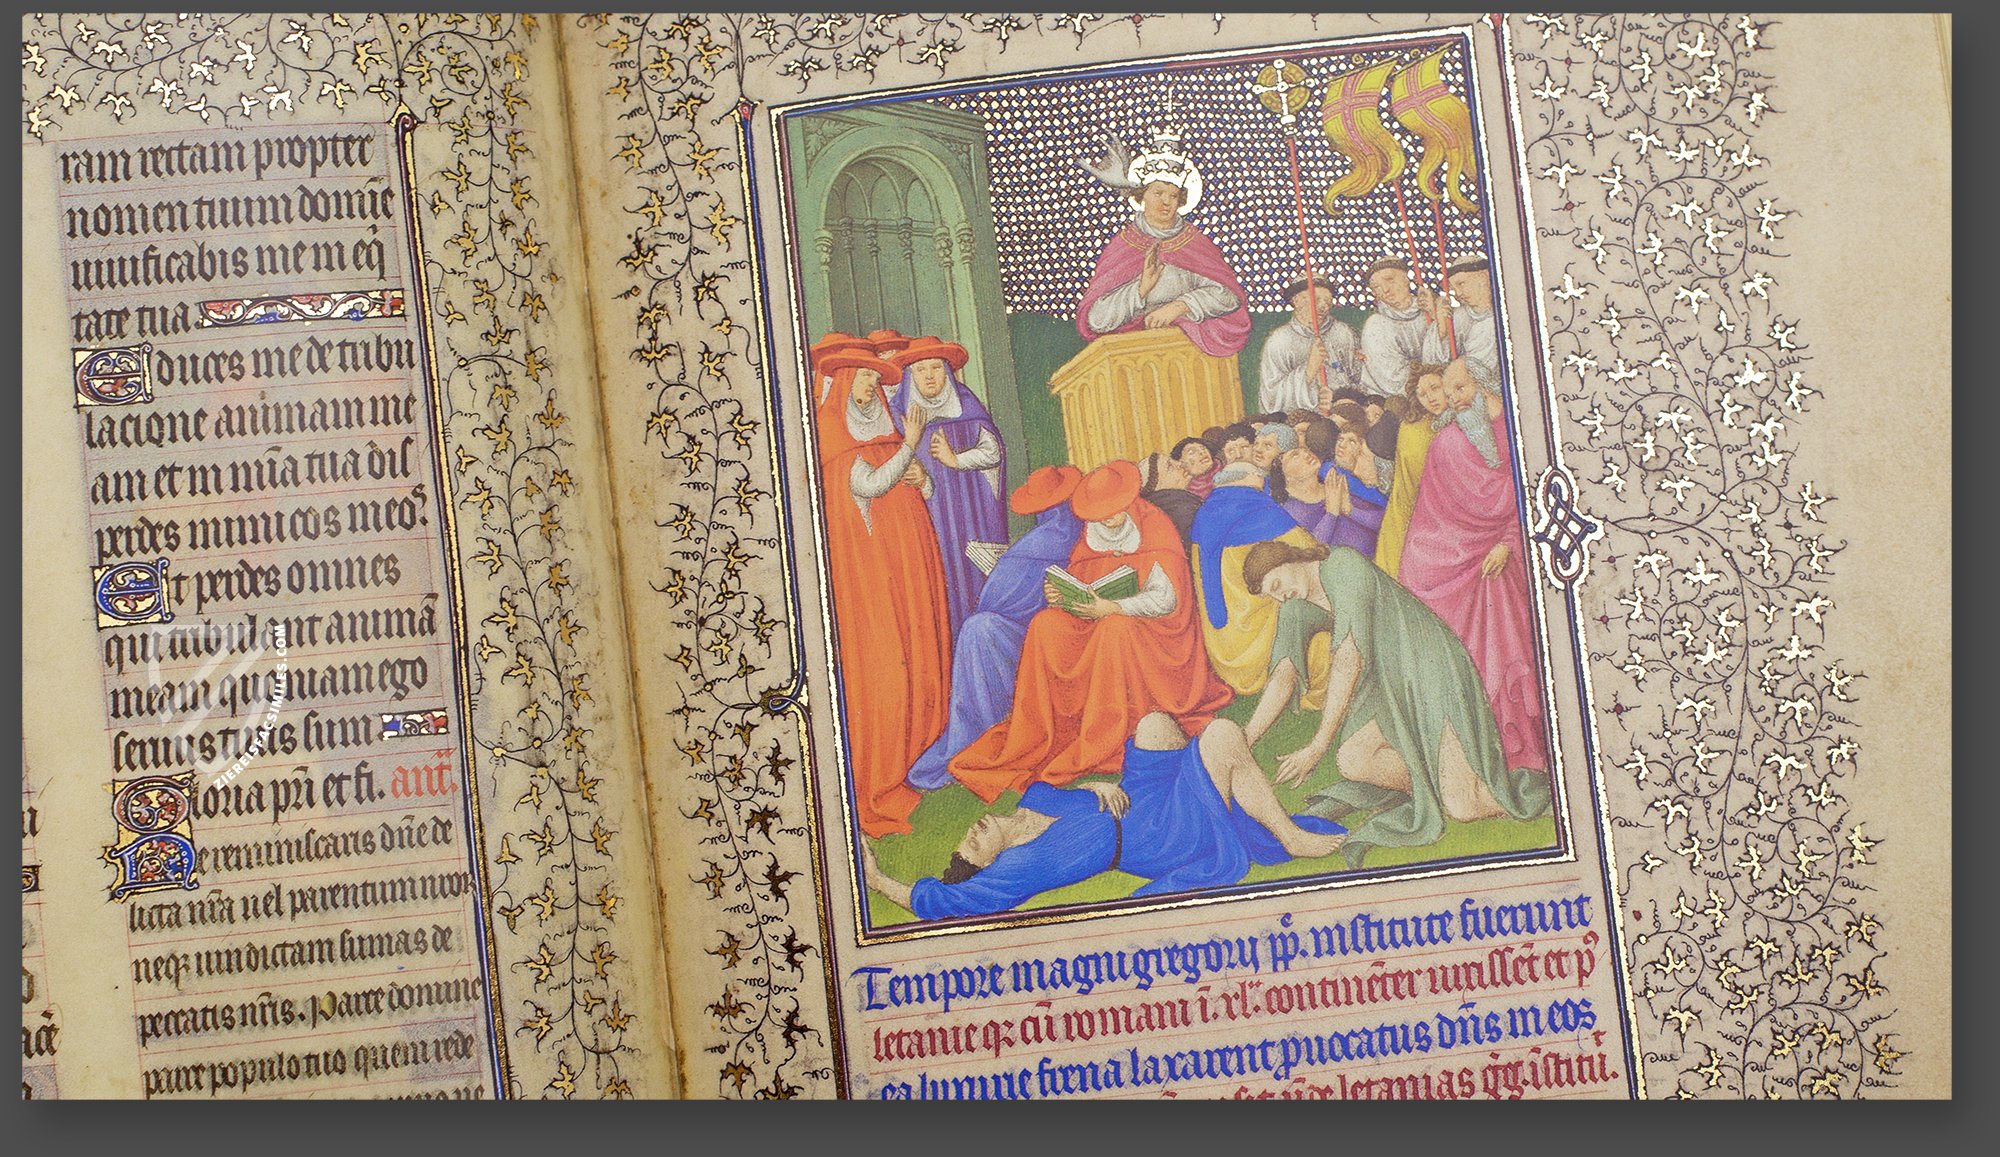 ram rectam propter
nomen tuum domīe
uiuificabis me in eq̄
tate tua
Educes me de tribu
lacione animam me
am et in mīa tua dis
perdes inimicos meos.
Et perdes omnes
qui tribulant animā
meam quoniam ego
seruus tuus sum
Gloria pr̄i et fi. ant̄.
Ne reminiscaris dn̄e de
licta nr̄a uel parentum nror̄
neq; uindictam sumas de
peccatis nr̄is. Parce domine
parce populo tuo quem rede
ZIEREIS FACSIMILES.COM
Tempore magni gregorij pp̄. institute fuerunt
letanie q; cū romani ī. xl. continēter uixissēt et p̄
ea luxurie frena laxarent p̄uocatus dn̄s in eos
letanias gḡ. īstitū.